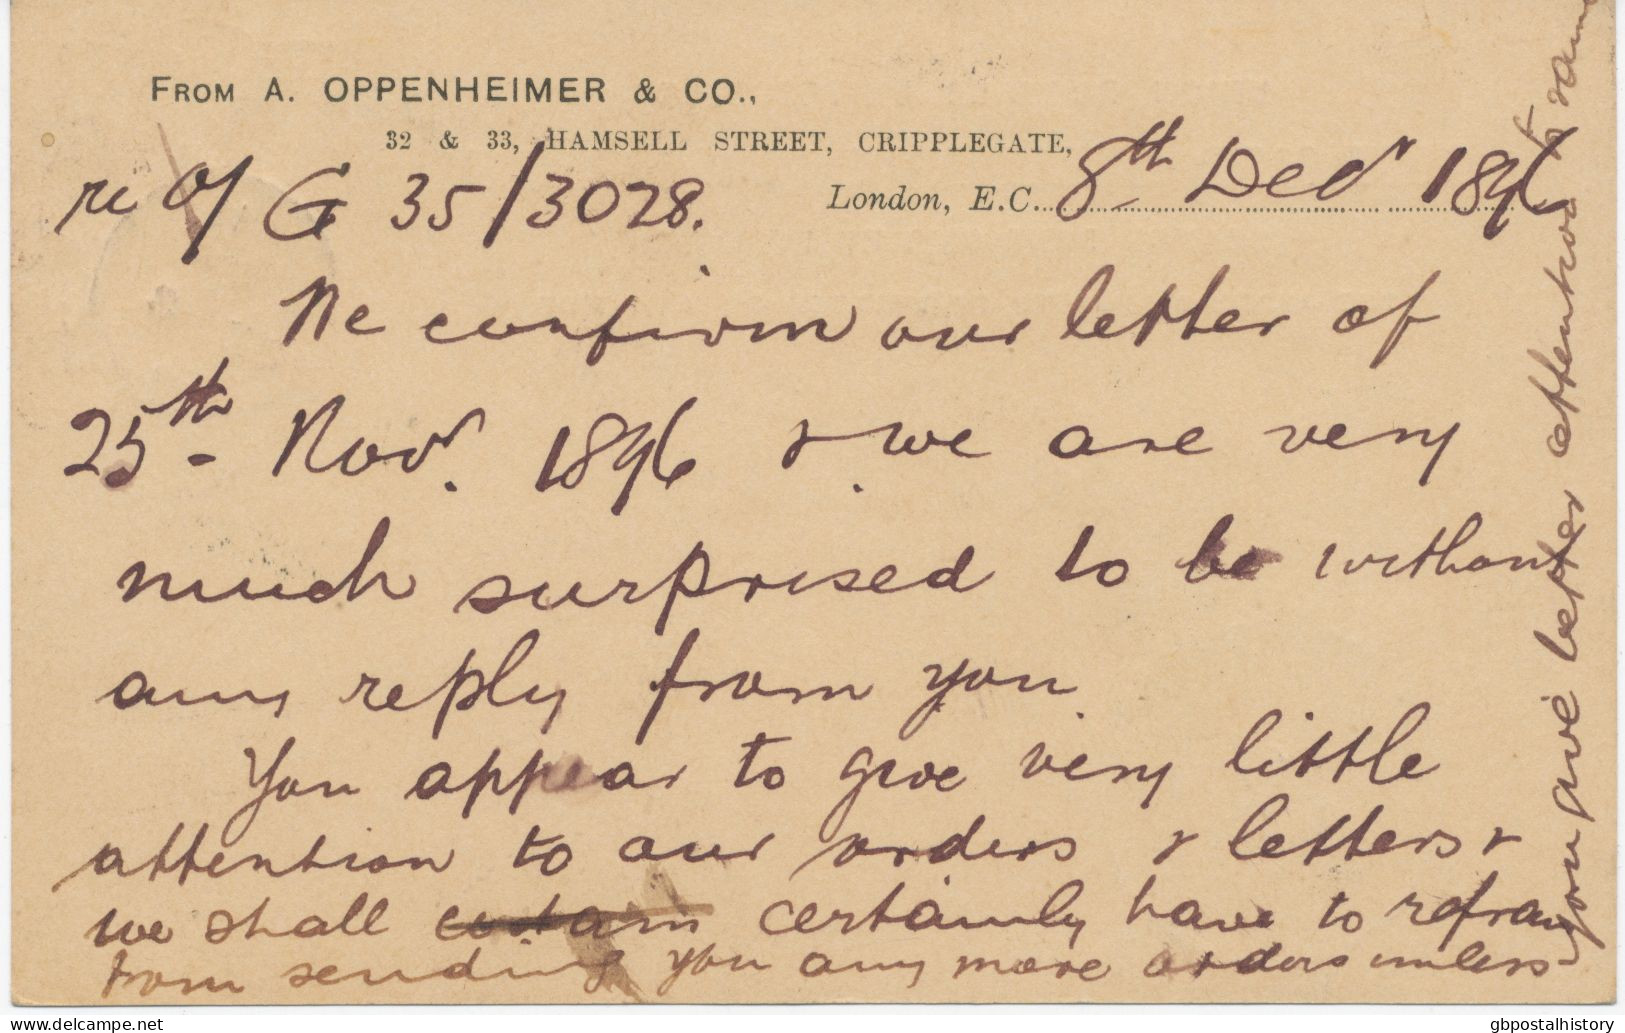 FROM A. OPPENHEIMER & CO.,
32 & 33, HAMSELL STREET, CRIPPLEGATE,
London, E.C. 8th Decr 1896
re O/ G 35/3028.
We confirm our letter of
25th Novr. 1896 & we are very
much surprised to be without
any reply from you
You appear to give very little
attention to our orders & letters &
we shall certainly have to refrain
from sending you any more orders unless
you give better attention to same
delcampe.net
gbpostalhistory